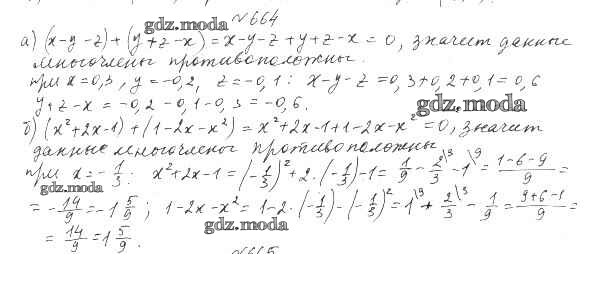 №664
а) (x-y-z)+(y+z-x)=x-y-z+y+z-x=0, значит данные
многочлены противоположны.
при x=0,3, y=-0,2, z=-0,1: x-y-z=0,3+0,2+0,1=0,6
y+z-x=-0,2-0,1-0,3=-0,6.
б) (x²+2x-1)+(1-2x-x²)=x²+2x-1+1-2x-x²=0, значит
данные многочлены противоположны.
при x=-1/3: x²+2x-1=(-1/3)²+2·(-1/3)-1=1/9-2/3\3-1\9=(1-6-9)/9=
=-14/9=-1 5/9; 1-2x-x²=1-2·(-1/3)-(-1/3)²=1\9+2/3\3-1/9=(9+6-1)/9=
=14/9=1 5/9.
№665
gdz.moda
gdz.moda
gdz.moda
gdz.moda